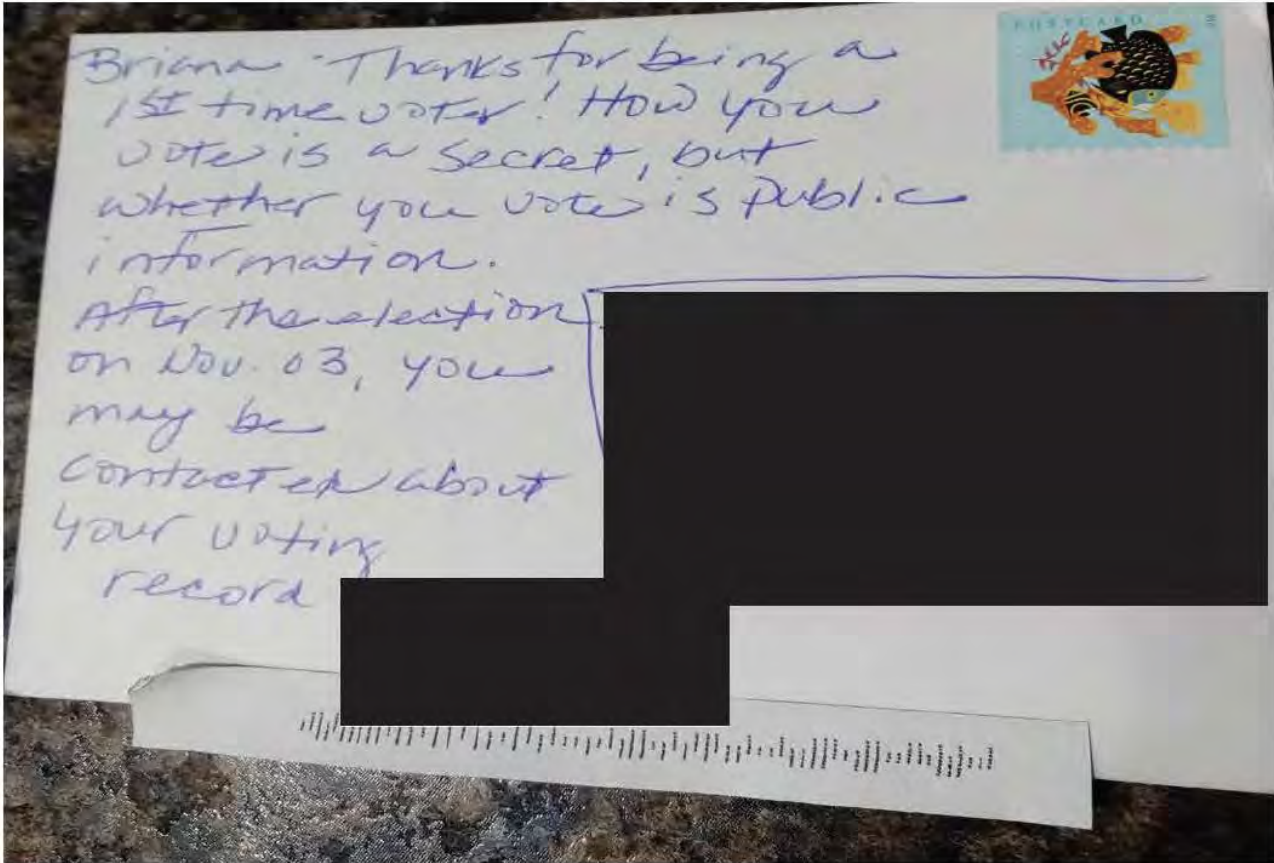 POSTCARD
Briana - Thanks for being a
1st time voter! How you
vote is a secret, but
whether you vote is public
information.
After the election
on Nov. 03, you
may be
contacted about
your voting
record